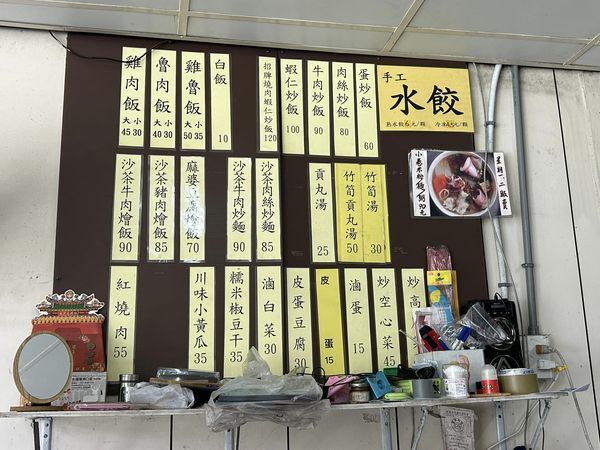 雞肉飯 大45 小30
魯肉飯 大40 小30
雞魯飯 大50 小35
白飯 10
招牌燒肉蝦仁炒飯 120
蝦仁炒飯 100
牛肉炒飯 90
肉絲炒飯 80
蛋炒飯 60
手工
水餃
熟水餃6元/顆
沙茶牛肉燴飯 90
沙茶豬肉燴飯 85
沙茶牛肉炒麵 90
沙茶肉絲炒麵 85
貢丸湯 25
竹筍貢丸湯 50
竹筍湯 30
紅燒肉 55
川味小黃瓜 35
糯米椒豆干 35
滷白菜 30
皮蛋豆腐 30
皮蛋 15
滷蛋 15
炒空心菜 45